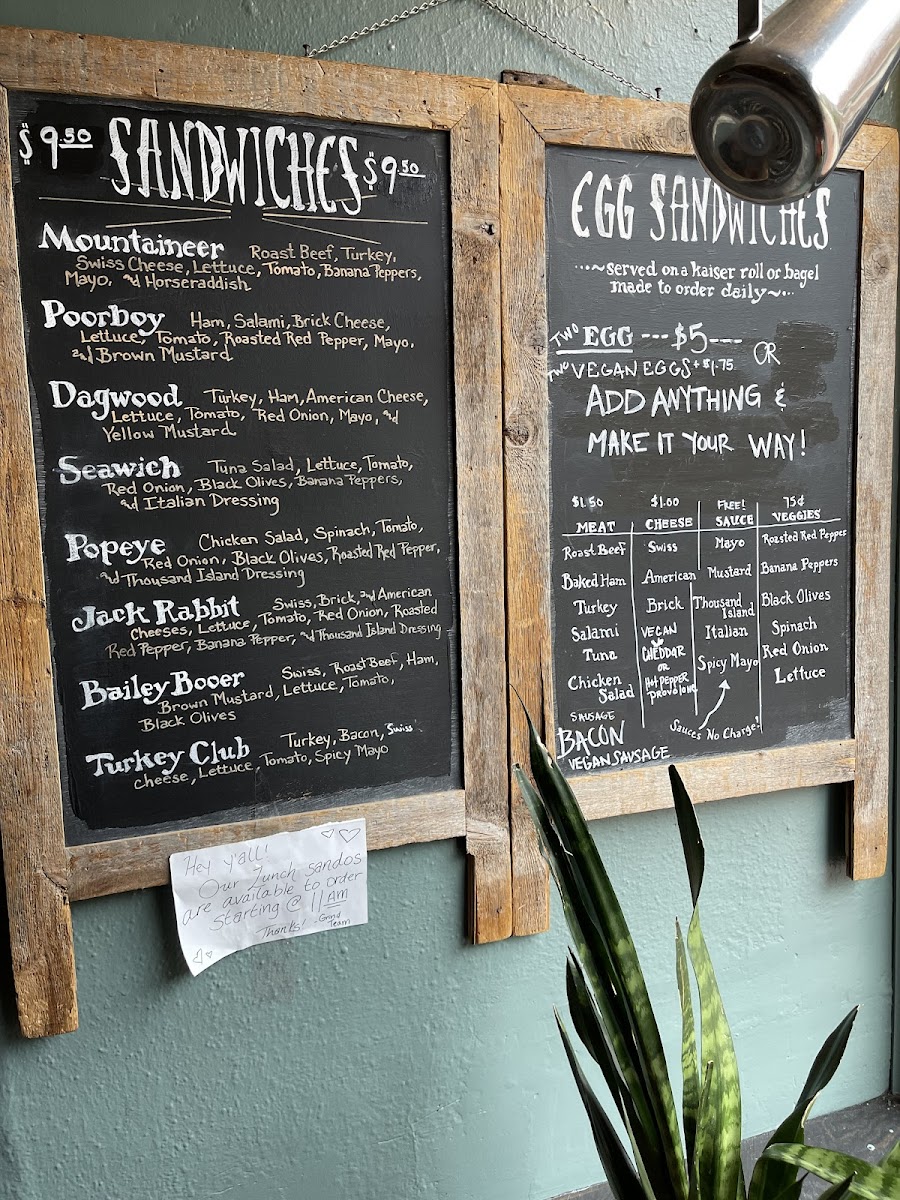 $9.50 SANDWICHES $9.50
Mountaineer Roast Beef, Turkey,
Swiss Cheese, Lettuce, Tomato, Banana Peppers,
Mayo, and Horseraddish
Poorboy Ham, Salami, Brick Cheese,
Lettuce, Tomato, Roasted Red Pepper, Mayo,
and Brown Mustard
Dagwood Turkey, Ham, American Cheese,
Lettuce, Tomato, Red Onion, Mayo, and
Yellow Mustard
Seawich Tuna Salad, Lettuce, Tomato,
Red Onion, Black Olives, Banana Peppers,
and Italian Dressing
Popeye Chicken Salad, Spinach, Tomato,
Red Onion, Black Olives, Roasted Red Pepper,
and Thousand Island Dressing
Jack Rabbit Swiss, Brick, and American
Cheeses, Lettuce, Tomato, Red Onion, Roasted
Red Pepper, Banana Pepper, and Thousand Island Dressing
Bailey Booer Swiss, Roast Beef, Ham,
Brown Mustard, Lettuce, Tomato,
Black Olives
Turkey Club Turkey, Bacon, Swiss
cheese, Lettuce, Tomato, Spicy Mayo
Hey y'all!
Our Lunch sandos
are available to order
starting @ 11AM
Thanks! -Grind
Team
EGG SANDWICHES
...~served on a kaiser roll or bagel
made to order daily~...
TWO EGG ---$5---
TWO VEGAN EGGS +$1.75 OR
ADD ANYTHING &
MAKE IT YOUR WAY!
$1.50 $1.00 FREE! 75¢
MEAT CHEESE SAUCE VEGGIES
Roast Beef Swiss Mayo Roasted Red Pepper
Baked Ham American Mustard Banana Peppers
Turkey Brick Thousand Island Black Olives
Salami VEGAN Italian Spinach
Tuna CHEDDAR Spicy Mayo Red Onion
OR
Chicken Salad HOT PEPPER Lettuce
PROVOLONE
SAUSAGE Sauces No Charge!
BACON
VEGAN SAUSAGE